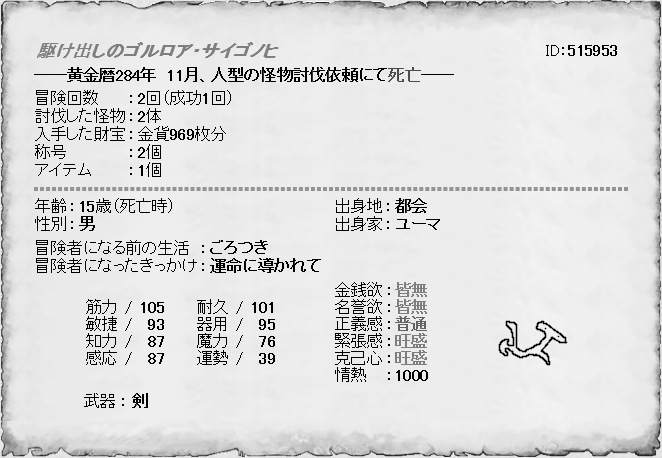 駆け出しのゴルロア・サイゴノヒ ID:515953
――黄金暦284年 11月、人型の怪物討伐依頼にて死亡――
冒険回数 :2回(成功1回)
討伐した怪物:2体
入手した財宝:金貨969枚分
称号 :2個
アイテム :1個
年齢:15歳(死亡時) 出身地:都会
性別:男 出身家:ユーマ
冒険者になる前の生活 :ごろつき
冒険者になったきっかけ:運命に導かれて
金銭欲:皆無
筋力 / 105 耐久 / 101 名誉欲:皆無
敏捷 / 93 器用 / 95 正義感:普通
知力 / 87 魔力 / 76 緊張感:旺盛
感応 / 87 運勢 / 39 克己心:旺盛
情熱 :1000
武器:剣